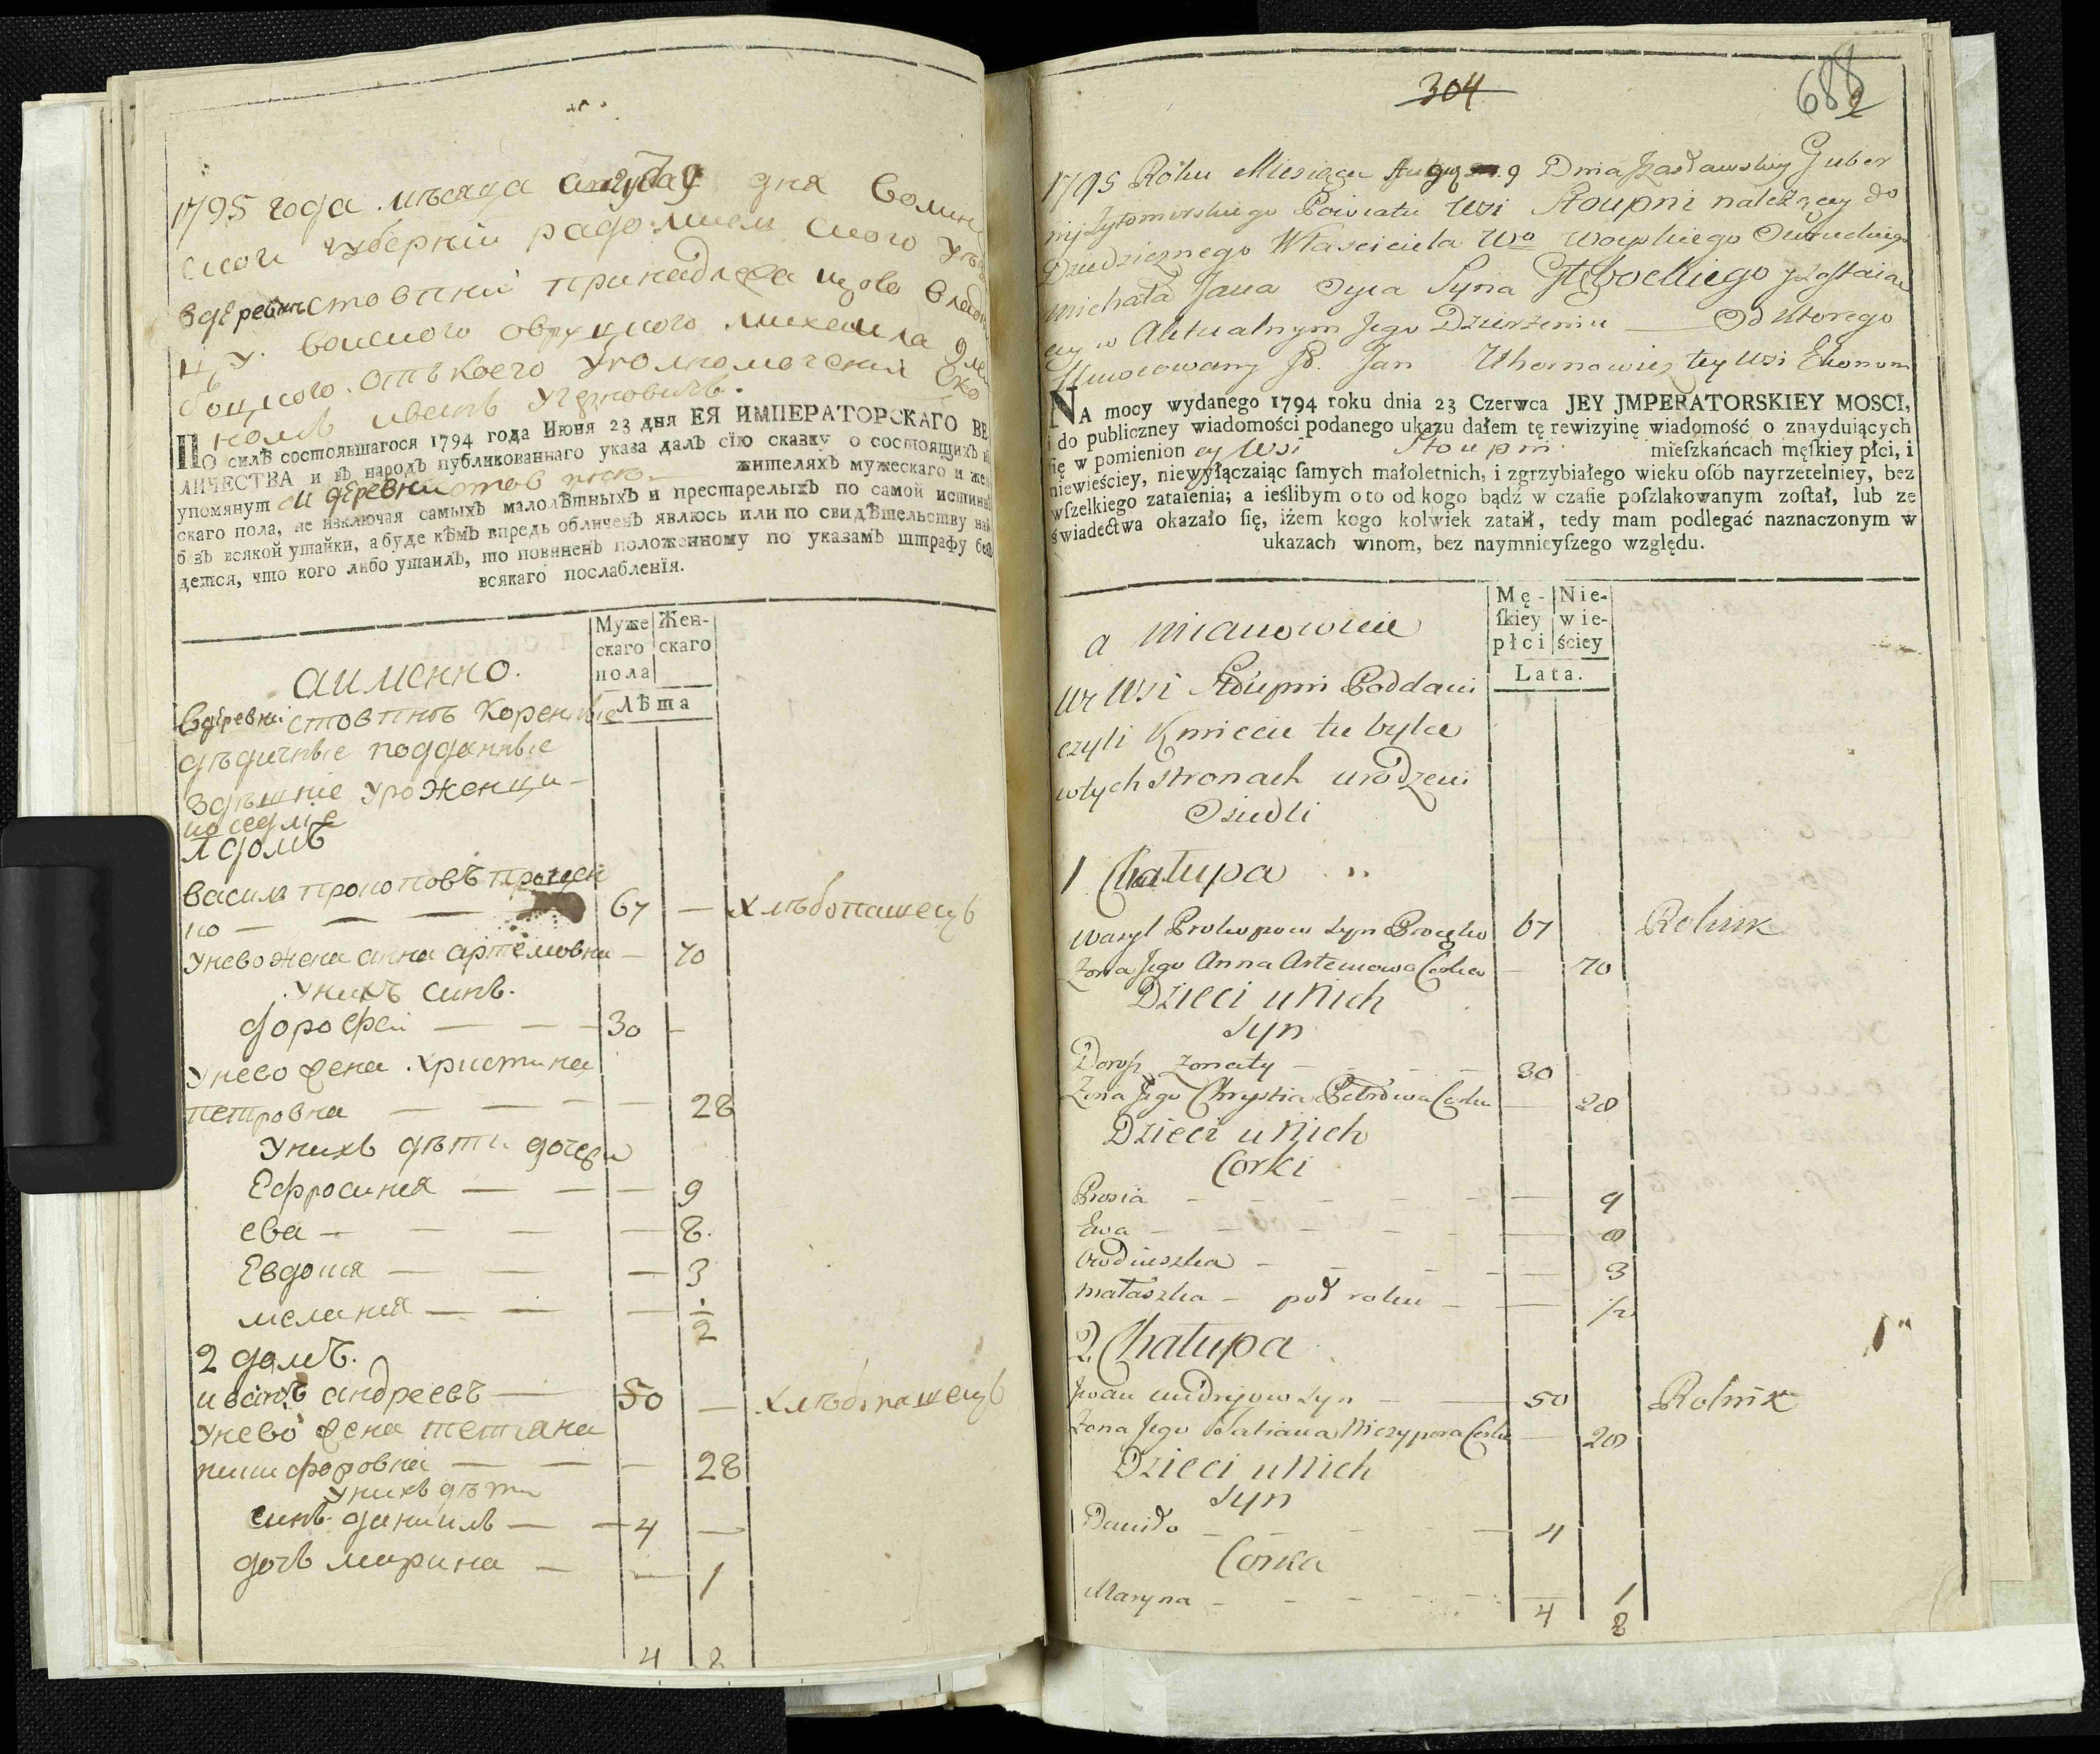 1795 года мѣсяца августа 9 дня Волин
ской губернїи радомисл ского уѣз
здеревни стовпнѣ принадлежа щово владѣ
войского овруцкого михаила
боцкого отъ коего уполномоченнїй Еко
номъ иванъ
По силѣ состоявшагося 1794 года Июня 23 дня ЕЯ ИМПЕРАТОРСКАГО ВЕ
ЛИЧЕСТВА и въ народъ публикованнаго указа далъ сїю сказку о состоящихъ в
упомянутой деревни стовпнѣ жителяхъ мужескаго и жен
скаго пола, не изключая самыхъ малолѣтныхъ и престарелыхъ по самой истиннѣ
безъ всякой утайки, а буде кѣмъ впредь обличенъ явлюсь или по свидѣтельству най
дется, что кого либо утаилъ, то повиненъ положенному по указамъ штрафу безъ
всякаго послабленїя.
Муже скаго пола Жен- скаго
Лѣта
аименно.
Вдеревнѣ стовпнѣ коренные
дѣдичные подданные
здѣшнїе уроженци
1 домъ
василь прокоповъ
ко — — — 67 — хлѣбопашецъ
Унево жена анна артемовна — 70
Унихъ синъ.
дорофей — — — 30 —
Унево жена христина
петровна — — — — 28
Унихъ дѣти дочери
Ефросиния — — — 9
ева — — — — 8.
Евдокия — — — 3
мелания — — — 1/2
2 домъ.
иванъ андреевъ — 50 — хлѣбопашецъ
Унево жена тетяна
никифоровна — — — 28
Унихъ дѣти
синъ даниилъ — — 4 —
дочь марина — — 1
4 8
304
688
2
1795 Roku Miesiąca Augu 9 Dnia Izasławskiey Guber
nij Zytomirskiego Powiatu Wsi Stoupni należącey do
Dziedzicznego Własciciela Wo Woyskiego Owruckiego
Michała Jana Oyca Syna Głębockiego zostaiac
ey w Aktualnym Jego Dzierżeniu — Od Ktorego
Umocowany JP. Jan Uhornowicz tey Wsi Ekonom
NA mocy wydanego 1794 roku dnia 23 Czerwca JEY JMPERATORSKIEY MOSCI,
i do publiczney wiadomości podanego ukazu dałem tę rewizyinę wiadomość o znayduiących
się w pomienion ey Wsi Stoupni mieſzkańcach męſkiey płci, i
niewieściey, niewyłączaiąc ſamych małoletnich, i zgrzybiałego wieku oſób nayrzetelniey, bez
wſzelkiego zataienia; a ieślibym o to od kogo bądź w czaſie poſzlakowanym zoſtał, lub ze
świadectwa okazało ſię, iżem kogo kolwiek zataił, tedy mam podlegać naznaczonym w
ukazach winom, bez naymnieyſzego względu.
Mę- ſkiey płci Nie- wie- ściey
Lata.
a mianowicie
We Wsi Stoupni Poddani
czyli Kmiecie tu bylce
wtych stronach urodzeni
Osiedli
1 Chałupa
Wasyl Prokopow Syn Procęko 67 Rolnik
Zona Jego Anna Artemowa Corka — 70
Dzieci u Nich
Syn
Dorofi Zonaty — — — 30
Zona Jego Chrystia Petrowa Corka — 28
Dzieci u Nich
Corki
Prosia — — — — 9
Ewa — — — — 8
Owdiuszka — — — — 3
Małaszka — poł roku — — 1/2
2 Chałupa
Jwan Andryiow Syn — — 50 Rolnik
Zona Jego Tatiana Niczypora Corka — 28
Dzieci u Nich
Syn
Daniło — — — — 4
Corka
Maryna — — — — 1
4 8